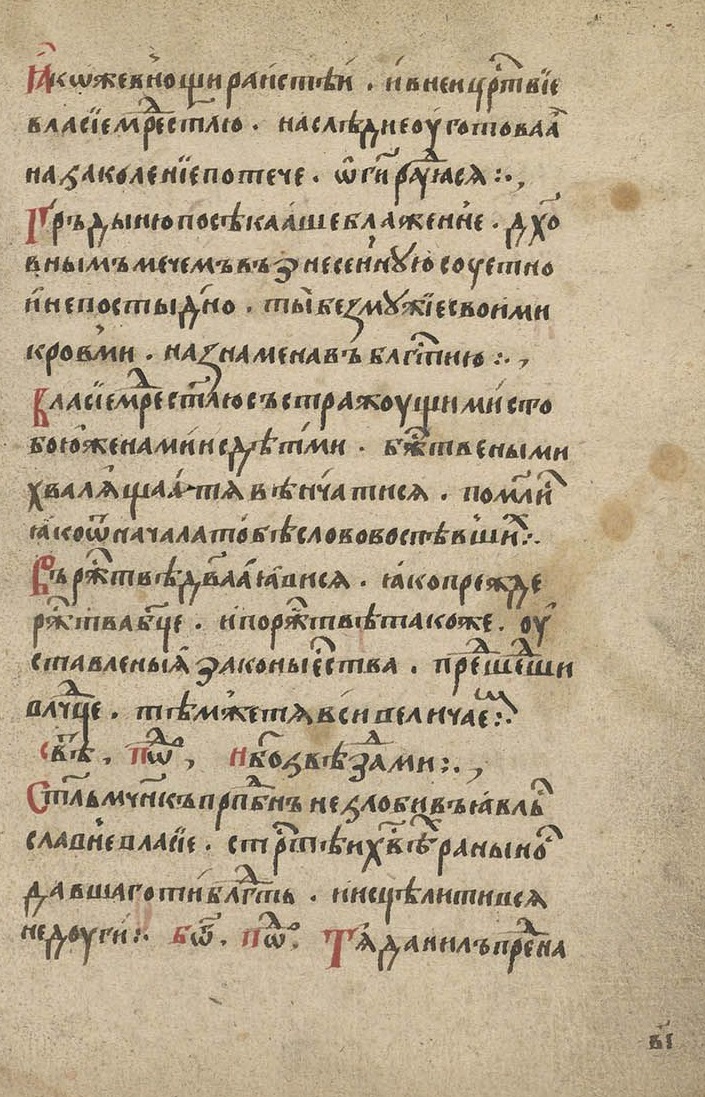 Ꙗкѡжевнощираистѣи . ивнеицрⷭ҇твїе
власїемⷬ҇рестлю . наслѣднеоуготоваа
назаколенїепотече . ѡ҆гн҃рⷣуюася :.,
Гръдынюпосѣкаащеблаженне . дх҃о
внымъмечемъвъзнесеннꙋюсоуетно
инепостыдно . тыбезмꙋжїесвоими
кровми . назнаменавъ блгⷭ҇тню :. ,
Власїемⷬ҇рестлюсъстражоущимисто
боюженамиисдѣтми . бж҃твеными
хвалѧщаа тѧвѣнчатисѧ . помⷧ҇и
ꙗкоѿначалатобѣсловоспѣвши:.
Въ ржⷭ҇твѣдв҃лаꙗвисѧ . ꙗкопрежде
ржⷭ҇тваб҃це . ипоржⷭ҇твѣтакоже . оу
ставленыѧ законыесⷭ҇тва . прешеⷣши
влⷣчце . тѣмжетѧвсивеличаеⷨ:.
свⷮѣ . пⷣѡ , Нб҃озвѣздами :. ,
Стл҃ьмчн҃къпрпⷣбнъ незлобивъꙗвль
славневласїе . стрⷭ҇тѣихвⷭ҇ѣⷯранынⷪ
давшаготиблгⷣть . иисцѣлитивсѧ
недоуги :. бѿ . пⷣѡ . Тѧ данилъпрена
в҃і